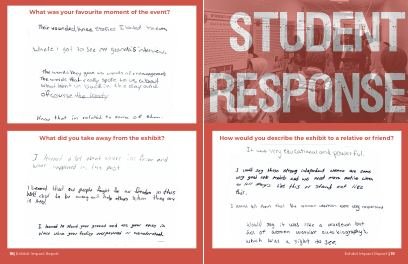 What was your favourite moment of the event?
Their wounded knee stories I loved them.
Where I got to see my grandma's interview.
The words they gave us words of encouragement
The words that really spoke to us about
what went in back in the day and
of course the food
Know that im related to some of them.
STUDENT
RESPONSE
What did you take away from the exhibit?
I learned a lot about where im from and
what happened in the past
I learned that our people fought for our freedom in this
and to be strong and help others when they are
in need
I learned to stand your ground and use your voice in
when your feeling overpowered or misunderstood.
Exhibit Impact Report
How would you describe the exhibit to a relative or friend?
It was very educational and powerful.
I would say these strong independent women are some
very good role models and we need more native women
or all people like this or stand out like
this.
I would tell them that the women were very important
Would say it was like a museum but
full of women wonder autobiography's
which was a sight to see.
Exhibit Impact Report